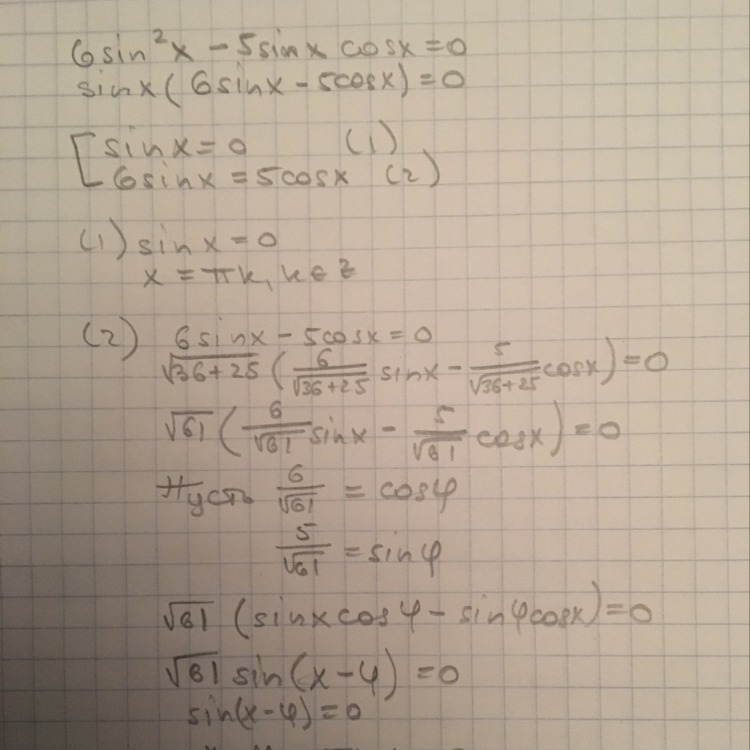 6sin²x − 5sinx cosx = 0
sinx(6sinx − 5cosx) = 0
[ sinx = 0 (1)
6sinx = 5cosx (2)
(1) sinx = 0
x = πk, k ∈ Z
(2) 6sinx − 5cosx = 0
√(36+25) (6/√(36+25) sinx − 5/√(36+25) cosx) = 0
√61 (6/√61 sinx − 5/√61 cosx) = 0
Пусть 6/√61 = cosφ
5/√61 = sinφ
√61 (sinxcosφ − sinφcosx) = 0
√61 sin(x−φ) = 0
sin(x−φ) = 0